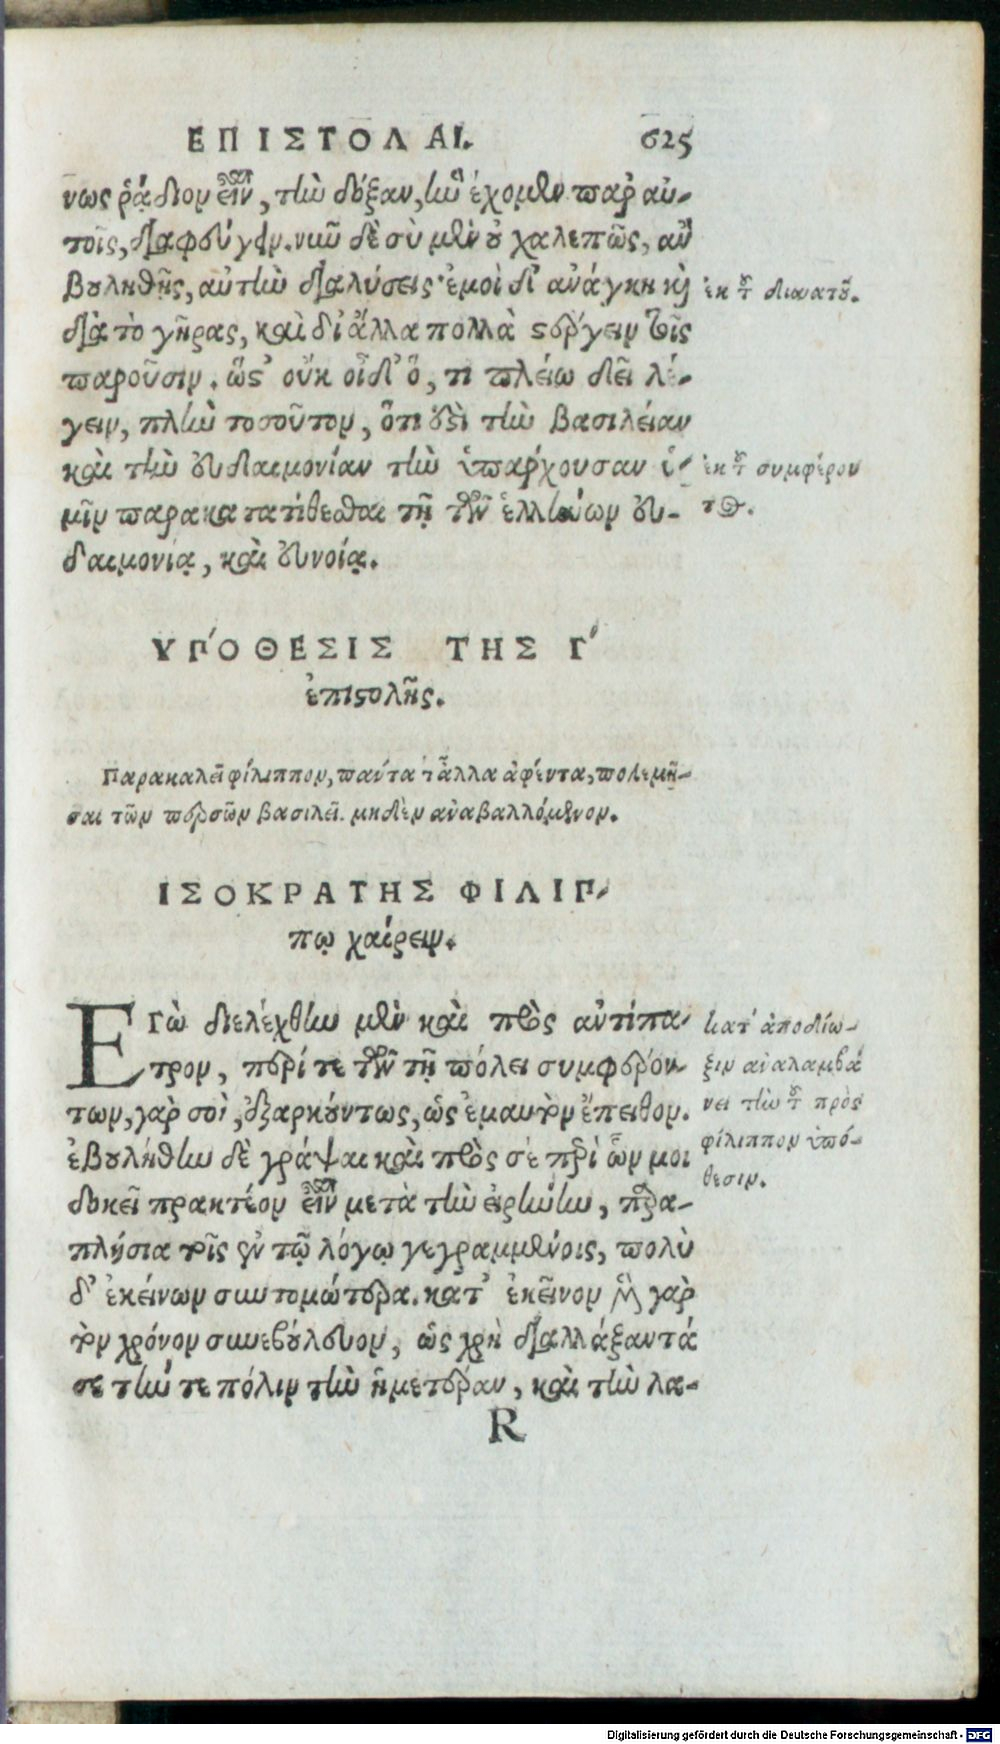 ΕΠΙΣΤΟΛΑΙ. 625
νως ῥᾴδιον εἶναι, τὴν δόξαν, ἣν ἔχομεν παρ' αὐ-
τοῖς, διαφεύγειν. νῦν δὲ σὺ μὲν οὐ χαλεπῶς, ἂν
βουληθῇς, αὐτὴν διαλύσεις· ἐμοὶ δ' ἀνάγκη καὶ
διὰ τὸ γῆρας, καὶ δι' ἄλλα πολλὰ στέργειν τοῖς
παροῦσιν. ὥστ' οὐκ οἶδ' ὅ, τι πλείω δεῖ λέ-
γειν, πλὴν τοσοῦτον, ὅτι ἐστὶ τὴν βασιλείαν
καὶ τὴν εὐδαιμονίαν τὴν ὑπάρχουσαν ὑ-
μῖν παρακατατίθεσθαι τῇ τῶν ἑλλήνων εὐ-
δαιμονίᾳ, καὶ εὐνοίᾳ.
ἐκ τοῦ δυνατοῦ.
ἐκ τοῦ συμφέρον
τος.
ΥΠΌΘΕΣΙΣ ΤΗΣ Γ'
ἐπιστολῆς.
Παρακαλεῖ φίλιππον, πάντα τἆλλα ἀφέντα, πολεμῆ-
σαι τῶν περσῶν βασιλεῖ. μηδὲν ἀναβαλλόμενον.
ΙΣΟΚΡΑΤΗΣ ΦΙΛΙΠ-
πῳ χαίρειν.
ΕΓὼ διελέχθην μὲν καὶ πρὸς ἀντίπα-
τρον, περί τε τῶν τῇ πόλει συμφερόν-
των, γὰρ σοὶ, ἐξαρκούντως, ὡς ἐμαυτὸν ἔπειθον.
ἐβουλήθην δὲ γράψαι καὶ πρὸς σέ περὶ ὧν μοι
δοκεῖ πρακτέον εἶναι μετὰ τὴν εἰρήνην, παρα-
πλήσια τοῖς ἐν τῷ λόγῳ γεγραμμένοις, πολὺ
δ' ἐκείνων συντομώτερα. κατ' ἐκεῖνον μὲν γὰρ
τὸν χρόνον συνεβούλευον, ὡς χρὴ διαλλάξαντά
σε τήν τε πόλιν τὴν ἡμετέραν, καὶ τὴν λα-
κατ' ἀποδίω-
ξιν ἀναλαμβά
νει τὴν τοῦ πρὸς
φίλιππον ὑπό-
θεσιν.
R
Digitalisierung gefördert durch die Deutsche Forschungsgemeinschaft - DFG